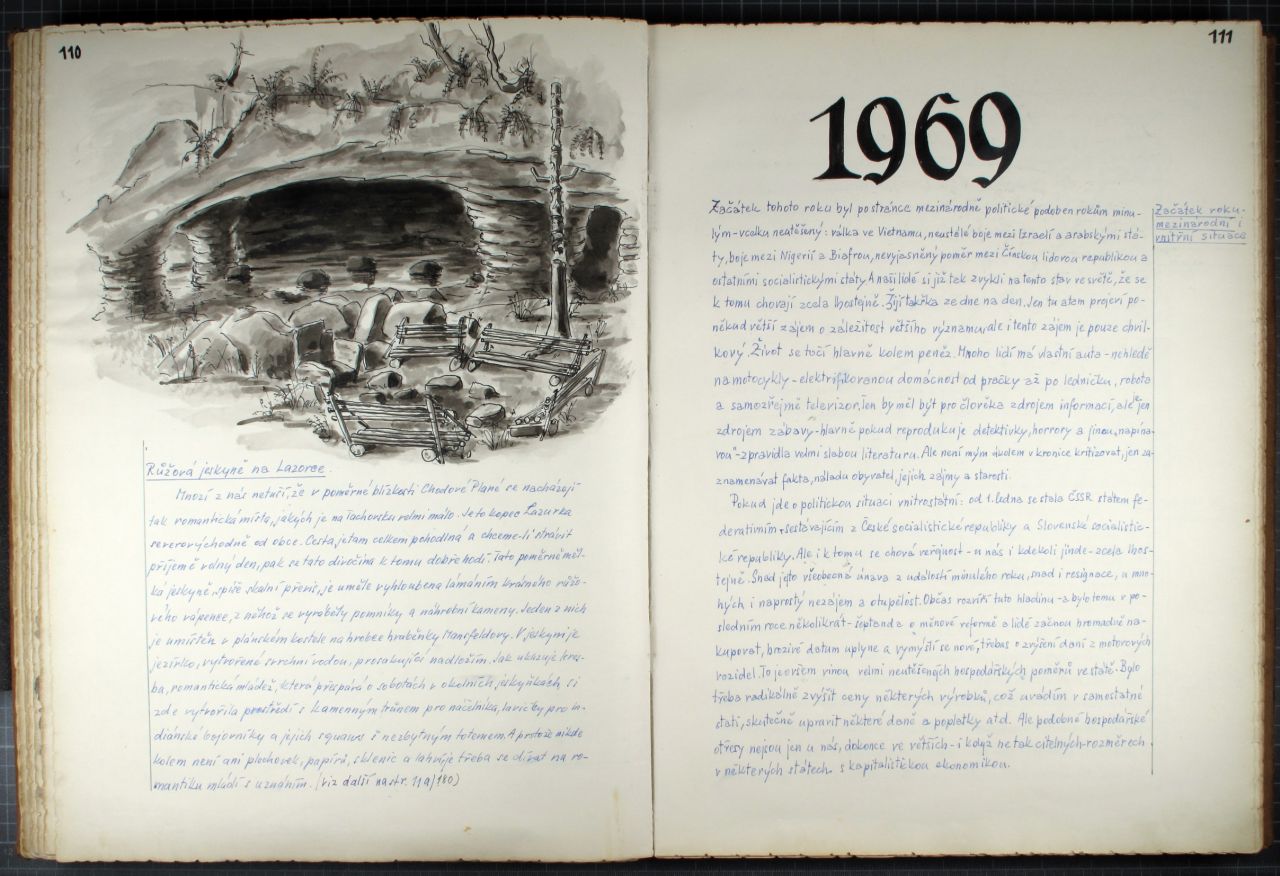 110
Růžová jeskyně na Lazurce.
Mnozí z nás netuší, že v poměrné blízkosti Chodové Plané se nacházejí
tak romantická místa, jakých je na Tachovsku velmi málo. Je to kopec Lazurka
severovýchodně od obce. Cesta je tam celkem pohodlná a chceme-li strávit
příjemě volný den, pak se tato divočina k tomu dobře hodí. Tato poměrně měl-
ká jeskyně, spíše skalní převis, je uměle vyhloubena lámáním krásného růžo-
vého vápence, z něhož se vyráběly pomníky a náhrobní kameny. Jeden z nich
je umístěn v plánském kostele na hrobce hraběnky Mansfeldovy. V jeskyni je
jezírko, vytvořené svrchní vodou, prosakující nadložím. Jak ukazuje kres-
ba, romantická mládež, která přespává o sobotách v okolních jeskyňkách, si
zde vytvořila prostředí s kamenným trůnem pro náčelníka, lavičky pro in-
diánské bojovníky a jejich squaws i nezbytným totemem. A protože nikde
kolem není ani plechovek, papírů, sklenic a lahví, je třeba se dívat na ro-
mantiku mládí s uznáním. (viz další na str. 119/180)
111
1969
Začátek roku-
mezinárodní i
vnitřní situace
Začátek tohoto roku byl po stránce mezinárodně politické podoben rokům minu-
lým - vcelku neutěšený: válka ve Vietnamu, neustálé boje mezi Izraelí a arabskými stá-
ty, boje mezi Nigerií a Biafrou, nevyjasněný poměr mezi Čínskou lidovou republikou a
ostatními socialistickými státy. A naši lidé si již tak zvykli na tento stav ve světě, že se
k tomu chovají zcela lhostejně. Žijí takřka ze dne na den. Jen tu a tam projeví po-
někud větší zájem o záležitost většího významu, ale i tento zájem je pouze chvil-
kový. Život se točí hlavně kolem peněz. Mnoho lidí má vlastní auta - nehledě
na motocykly - elektrifikovanou domácnost od pračky až po ledničku, robota
a samozřejmě televizor. Ten by měl být pro člověka zdrojem informací, ale je jen
zdrojem zábavy - hlavně pokud reprodukuje detektivky, horrory a jinou „napína-
vou" - zpravidla velmi slabou literaturu. Ale není mým úkolem v kronice kritizovat, jen za-
znamenávat fakta, náladu obyvatel, jejich zájmy a starosti.
Pokud jde o politickou situaci vnitrostátní: od 1. ledna se stala ČSSR státem fe-
derativním, sestávajícím z České socialistické republiky a Slovenské socialistic-
ké republiky. Ale i k tomu se chová veřejnost - u nás i kdekoli jinde - zcela lhos-
tejně. Snad je to všeobecná únava z událostí minulého roku, snad i resignace, u mno-
hých i naprostý nezájem a otupělost. Občas rozvíří tuto hladinu - a bylo tomu v po-
sledním roce několikrát - šeptanda o měnové reformě a lidé začnou hromadně na-
kupovat, hrozivé datum uplyne a vymýšlí se nové, třebas o zvýšení daní z motorových
vozidel. To je ovšem vinou velmi neutěšených hospodářských poměrů ve státě. Bylo
třeba radikálně zvýšit ceny některých výrobků, což uvádím v samostatné
stati, skutečně upravit některé daně a poplatky atd. Ale podobné hospodářské
otřesy nejsou jen u nás, dokonce ve větších - i když ne tak citelných - rozměrech
v některých státech s kapitalistickou ekonomikou.